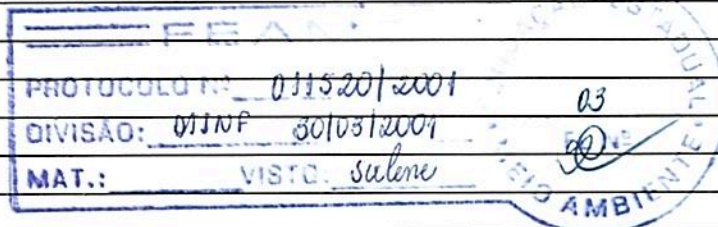 FEAM
PROTOCOLO Nº 011520/2001
DIVISÃO: DIINF 30/03/2001
MAT.: VISTO: Sulene
ESTADUAL
03
MEIO AMBIENTE